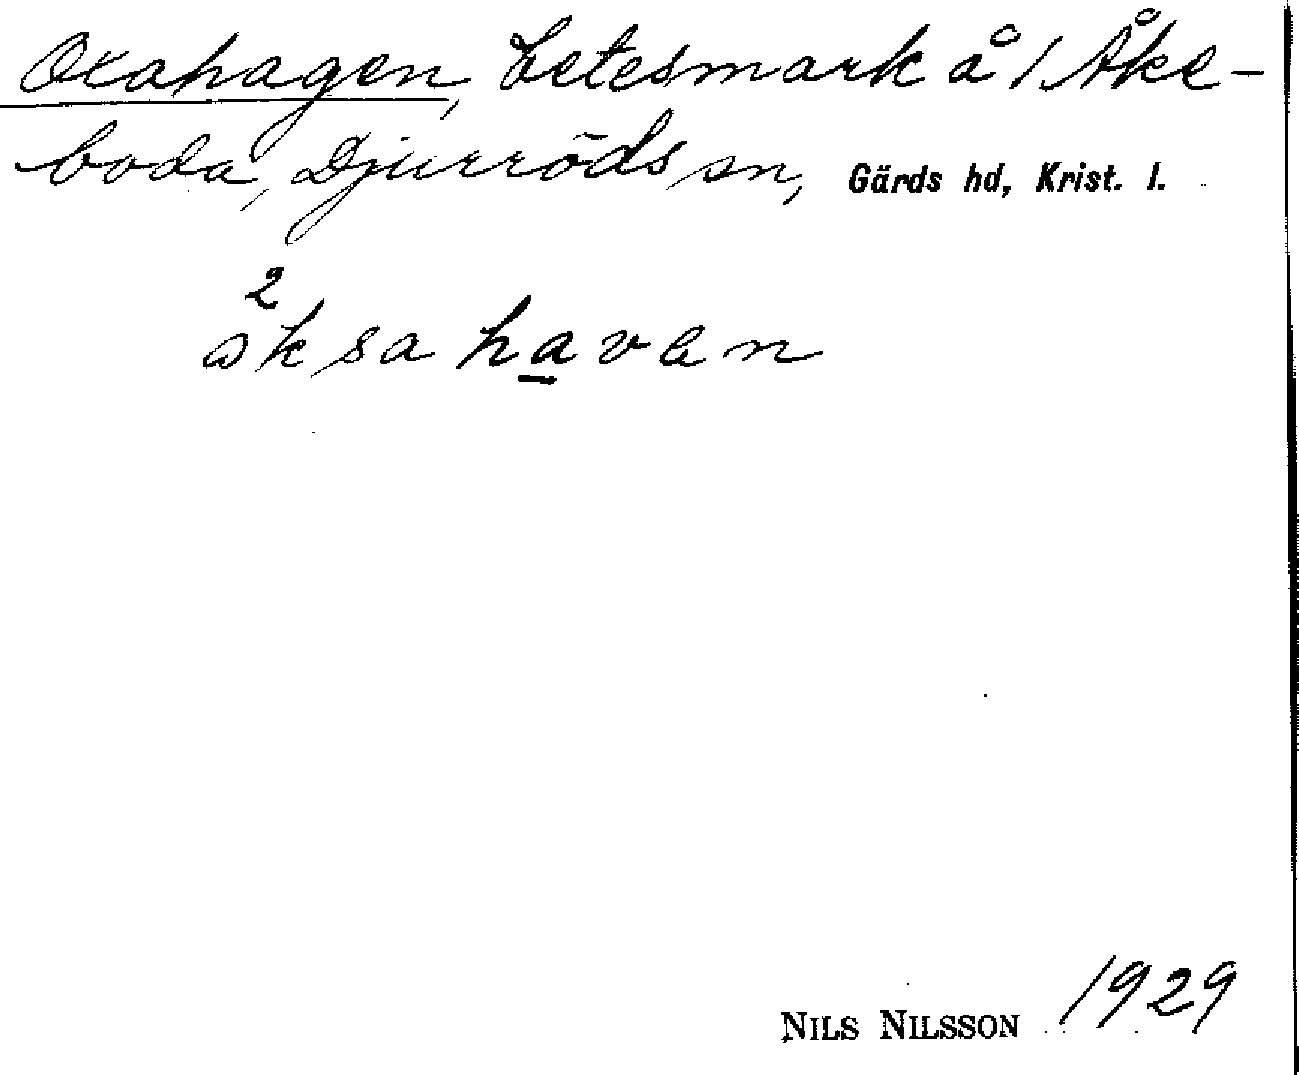 Oxahagen, betesmark å 1 Åke-
boda, Djurröds sn, Gärds hd, Krist. l.
2
aksahavan
NILS NILSSON 1929